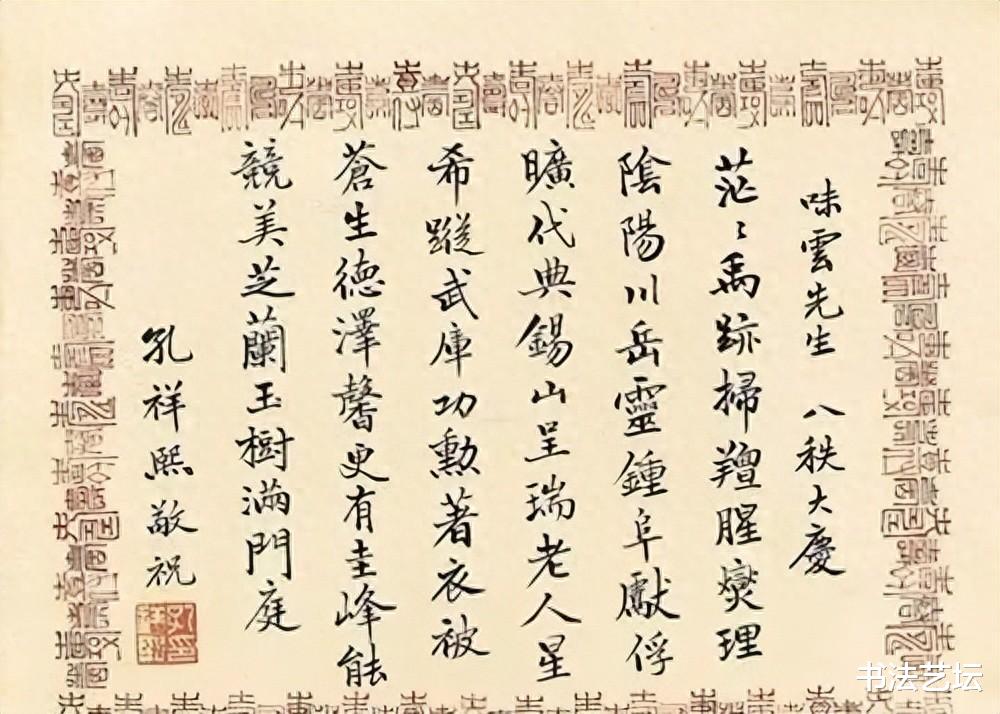 味雲先生 八秩大慶
茫〻禹跡掃羶腥燮理
陰陽川岳靈鍾阜獻俘
曠代典錫山呈瑞老人星
希蹤武庫功勲著衣被
蒼生德澤馨更有圭峰能
競美芝蘭玉樹滿門庭
孔祥熙敬祝
书法艺坛